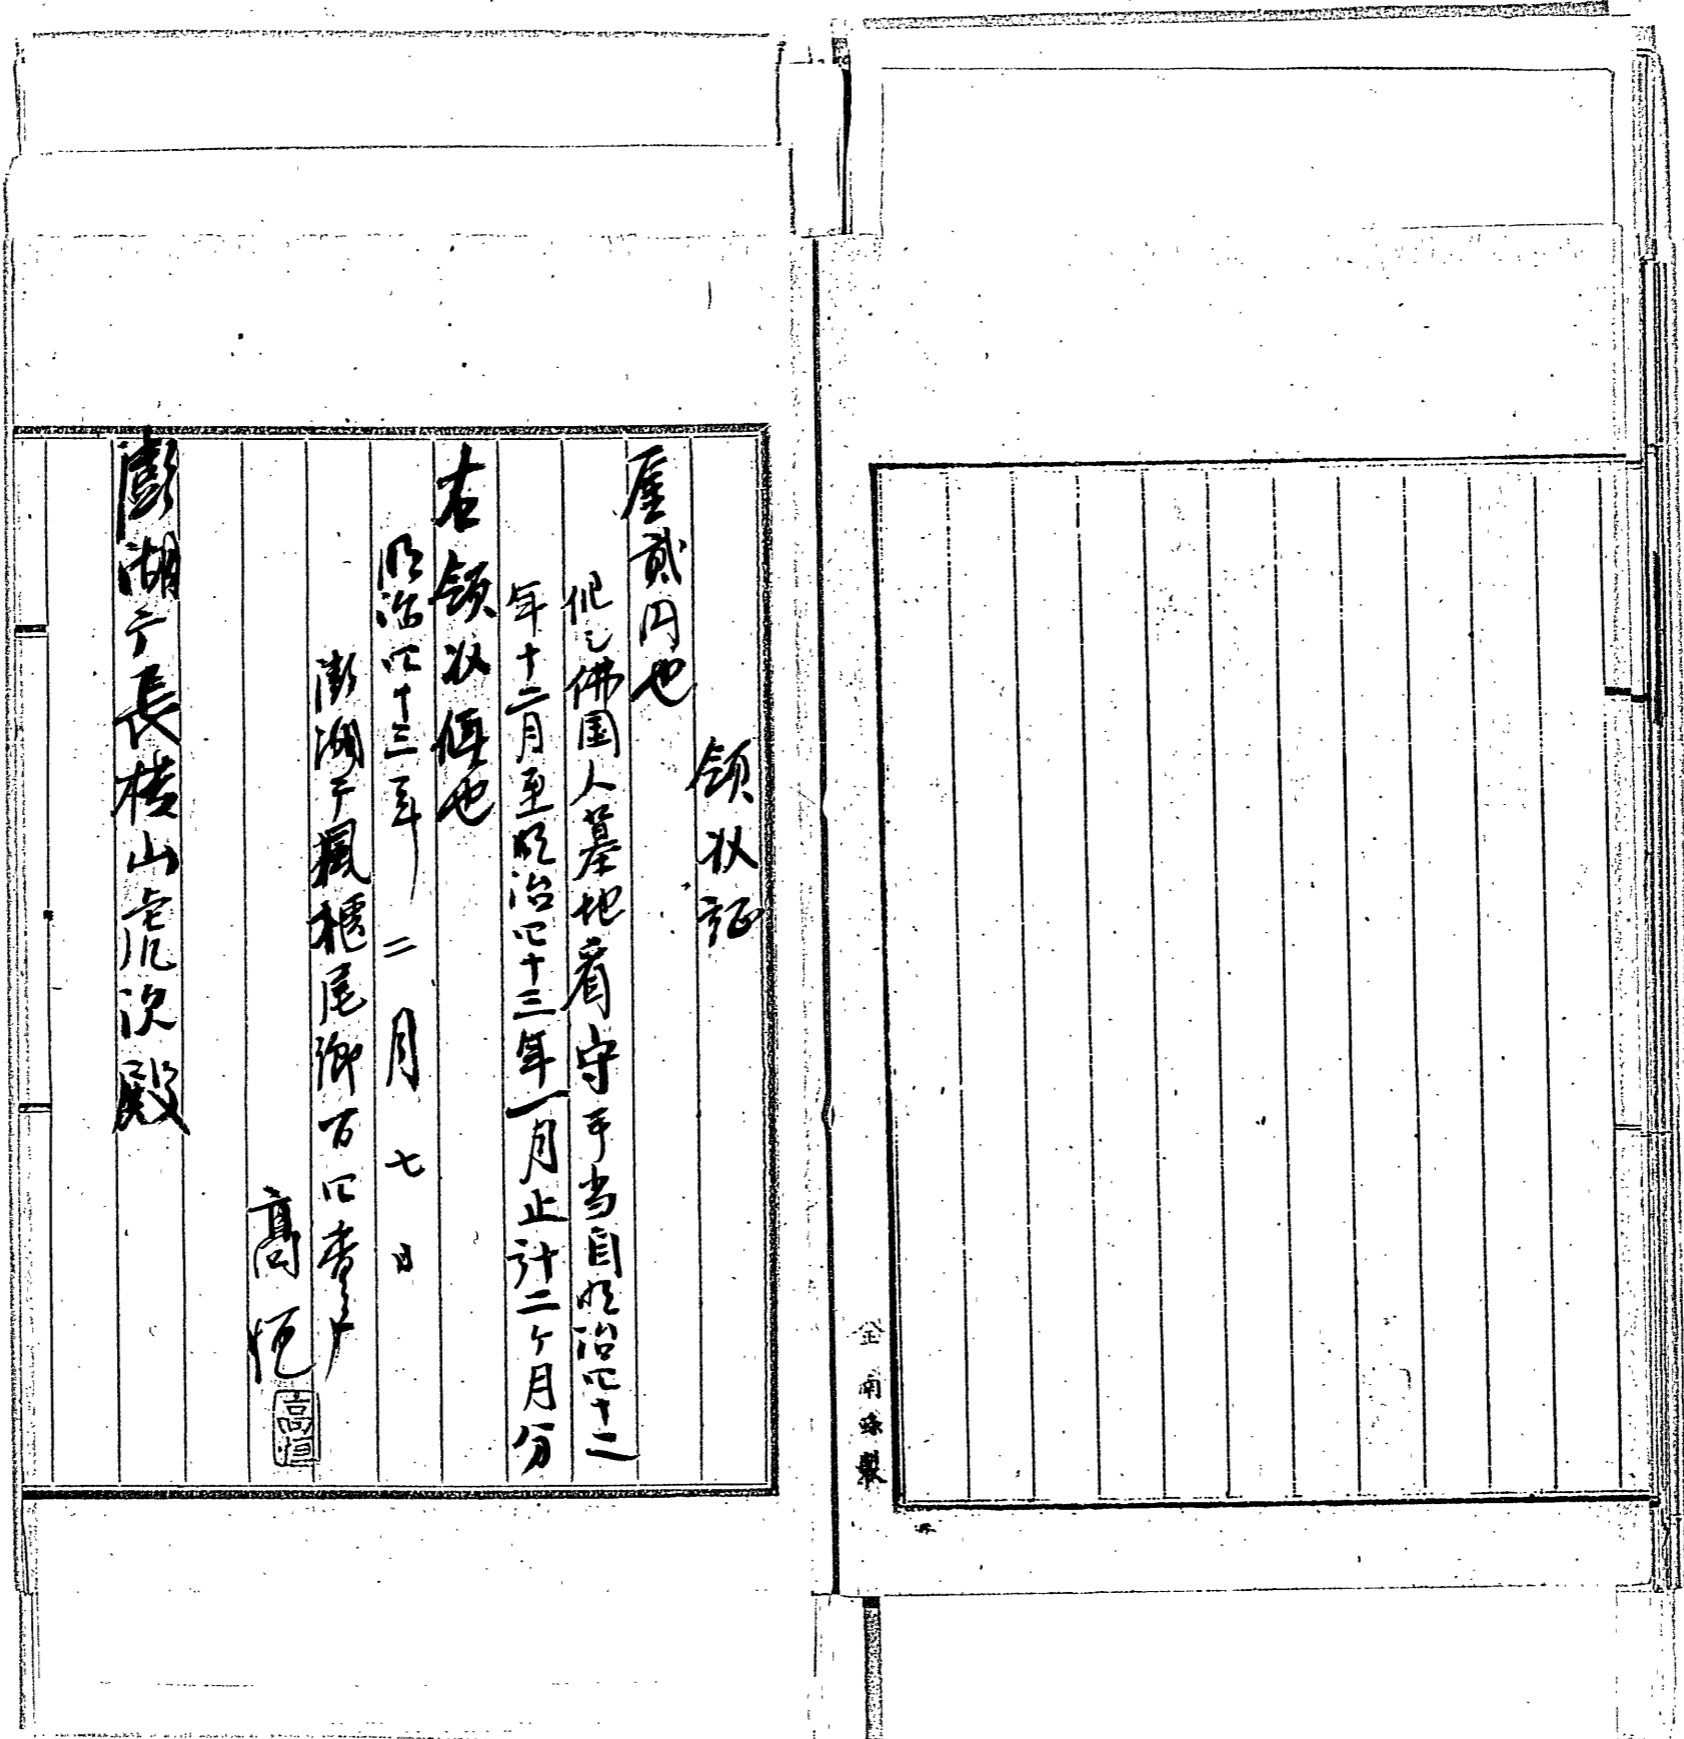 領收証
金貳円也
但シ佛国人墓地看守手当自明治四十二
年十二月至明治四十三年一月止計二ヶ月分
右領收候也
明治四十三年二月七日
澎湖庁風櫃尾鄉百四番戶
高恒
高恒
澎湖庁長横山虎次殿